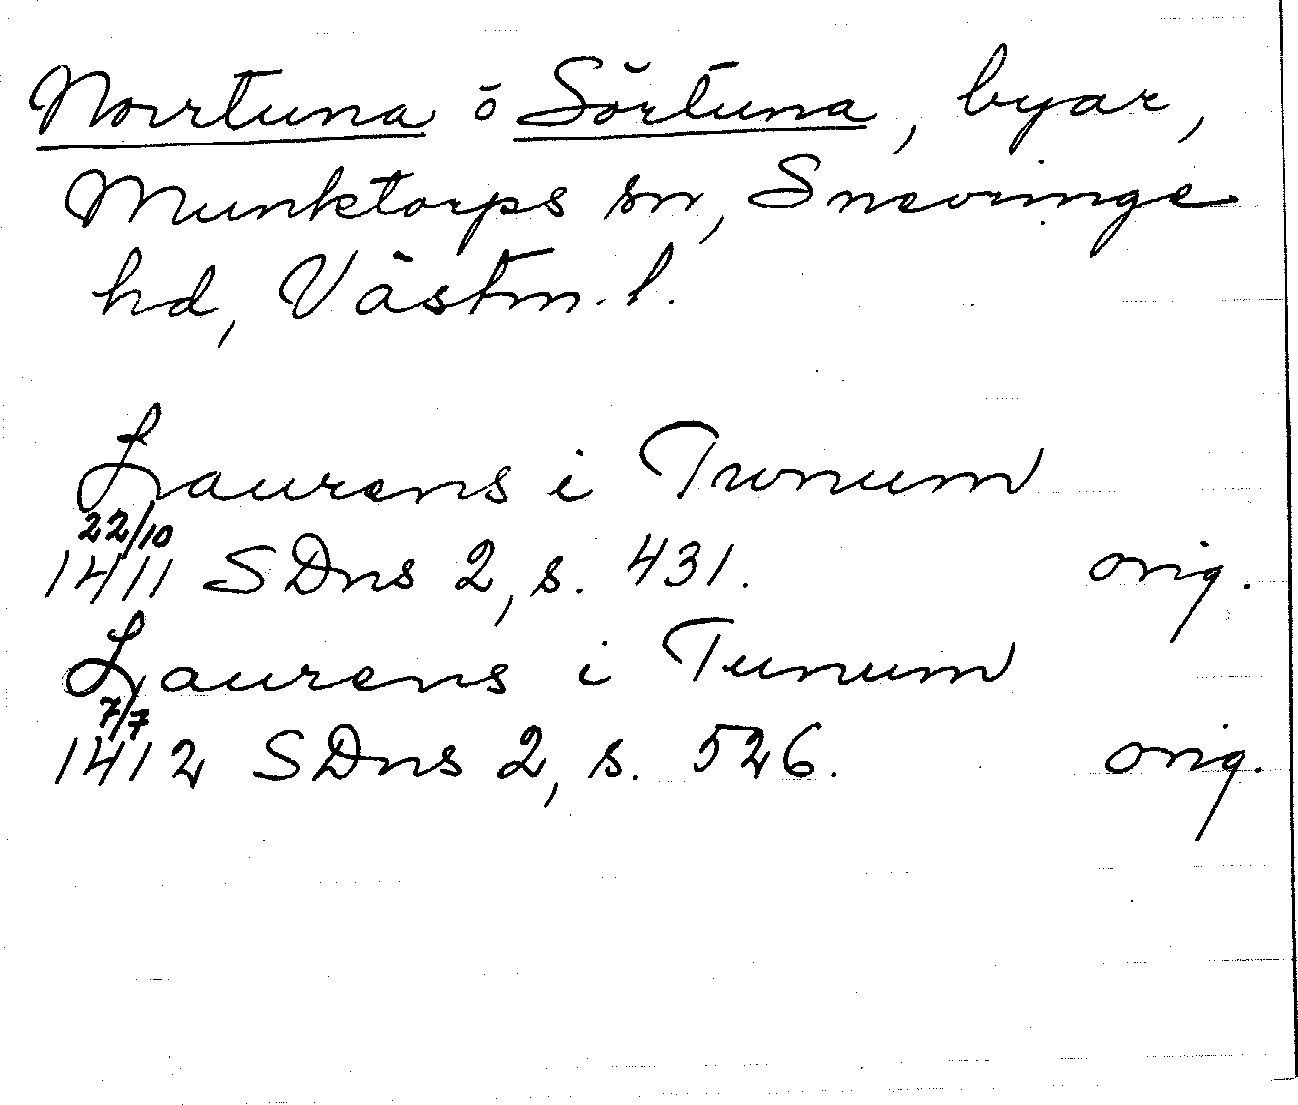 Norrtuna o Sörtuna, byar,
Munktorps sn, Snevringe
hd, Västm. l.
Laurens i Twnum
22/10
1411 SDns 2, s. 431. orig.
Laurens i Tunum
7/7
1412 SDns 2, s. 526. orig.